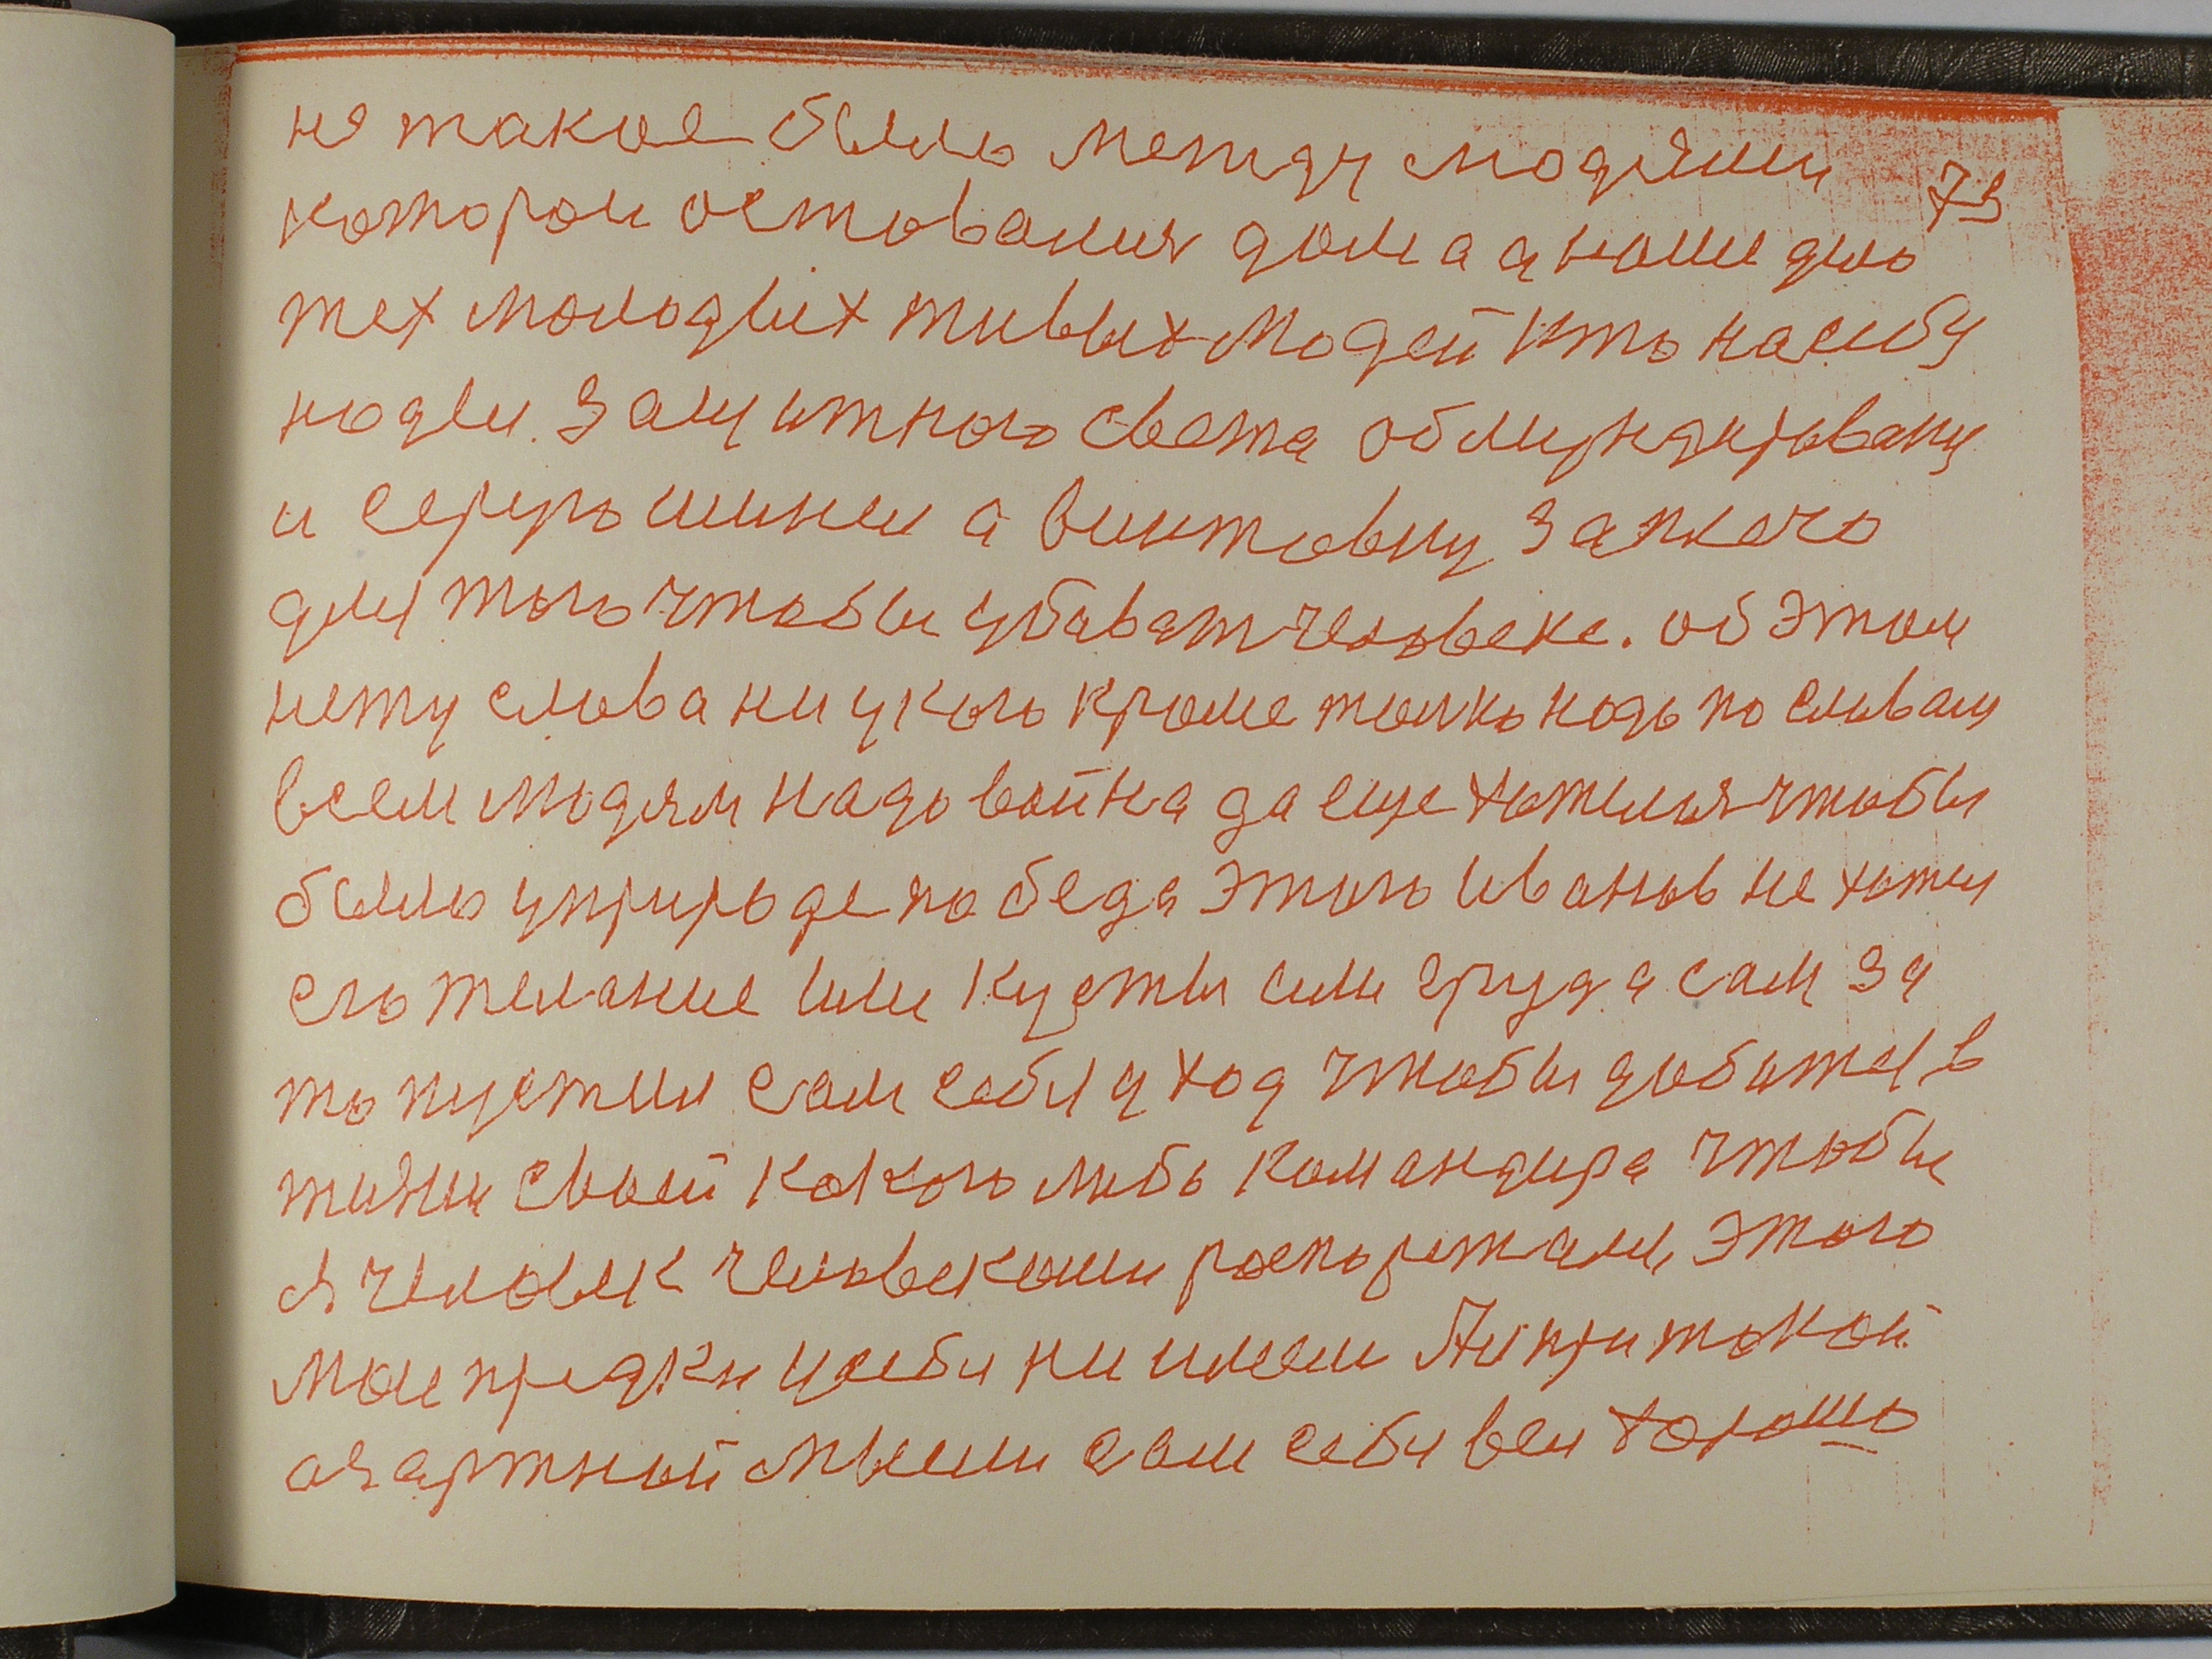 не такое было между людями
73
котором оставалися дома а ношу дило
тех молодых живых людей кто на сибу
нодел защитного света обмундированиу
и серую шинел а винтовку за плечо
для того чтобы убиват человека. об этом
нету слова ни у кого кроме толко нодо по словам
всем людям надо война да еще хотелися чтобы
было у природе победа этого Иванов не хотел
его желание или кусты или груда сам за
то пустил сам себя у ход чтобы добится в
жизни своей какого либо командира чтобы
я человек человеками роспорежался, этого
мои предки усебя ни имели Я и при токой
азартной мысли сам себя вел хорошо